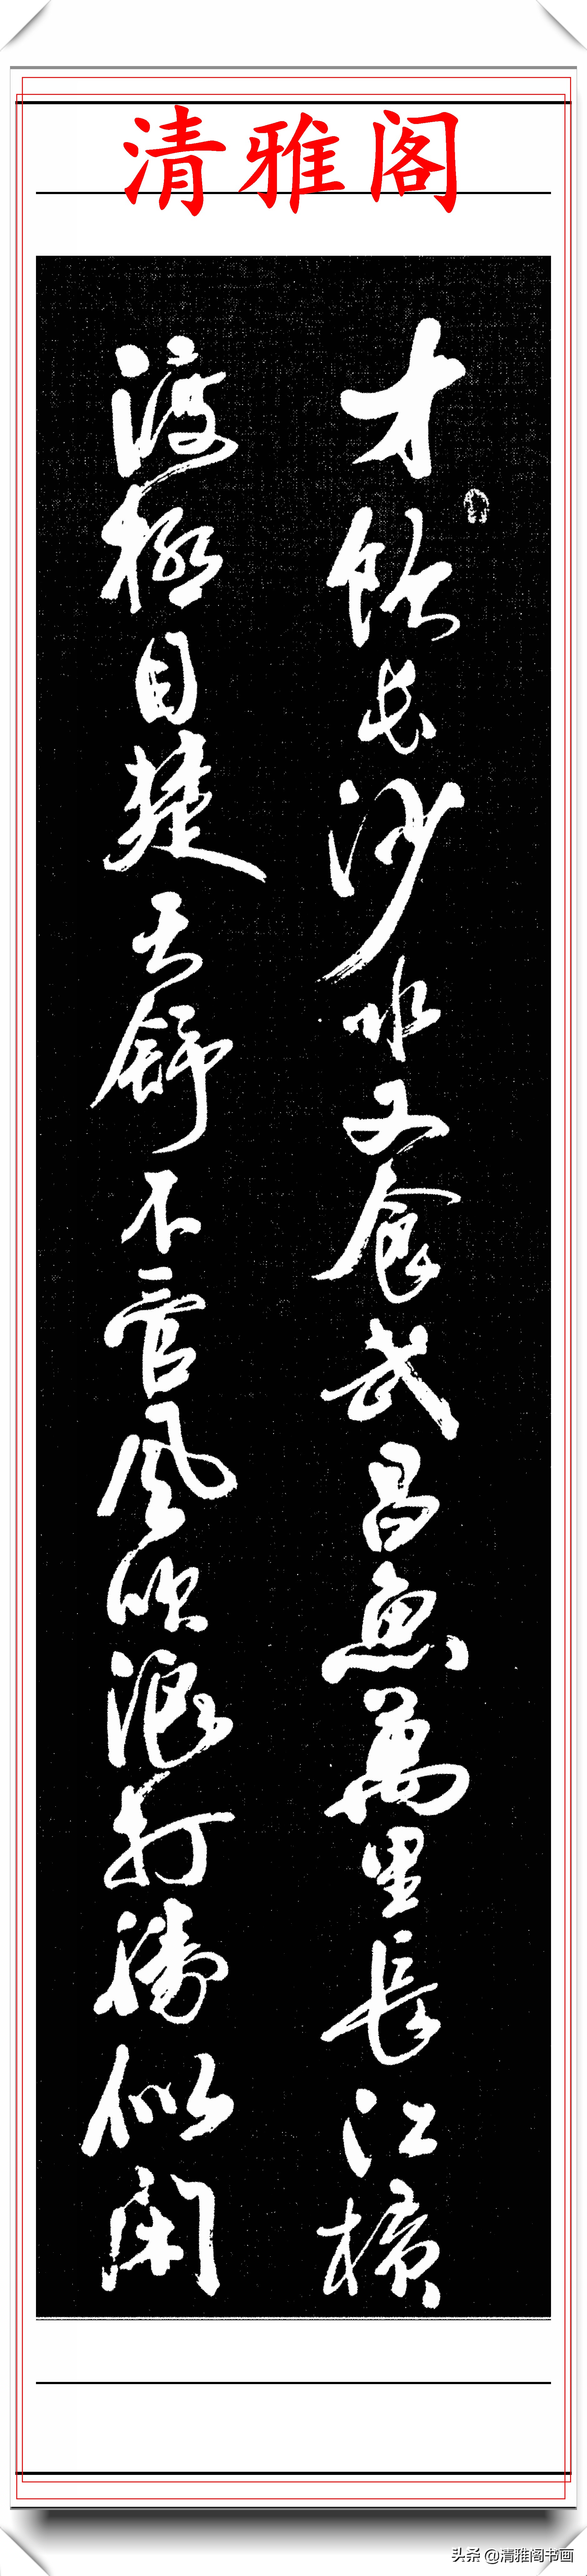 清雅阁
才饮长沙水又食武昌鱼萬里長江横
渡极目楚天舒不管風吹浪打勝似闲
头条 @清雅阁书画